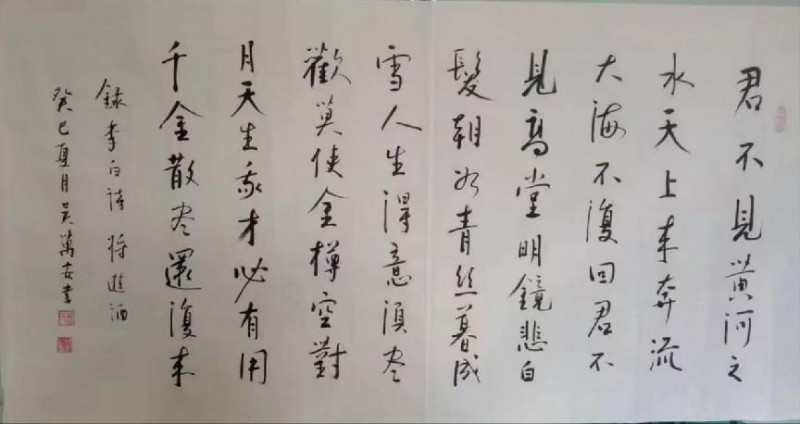 君不見黄河之
水天上来奔流
大海不復回君不
見高堂明鏡悲白
髮朝如青丝暮成
雪人生得意須尽
歡莫使金樽空對
月天生我才必有用
千金散尽還復来
録李白诗将進酒
癸巳夏月吴萬安书